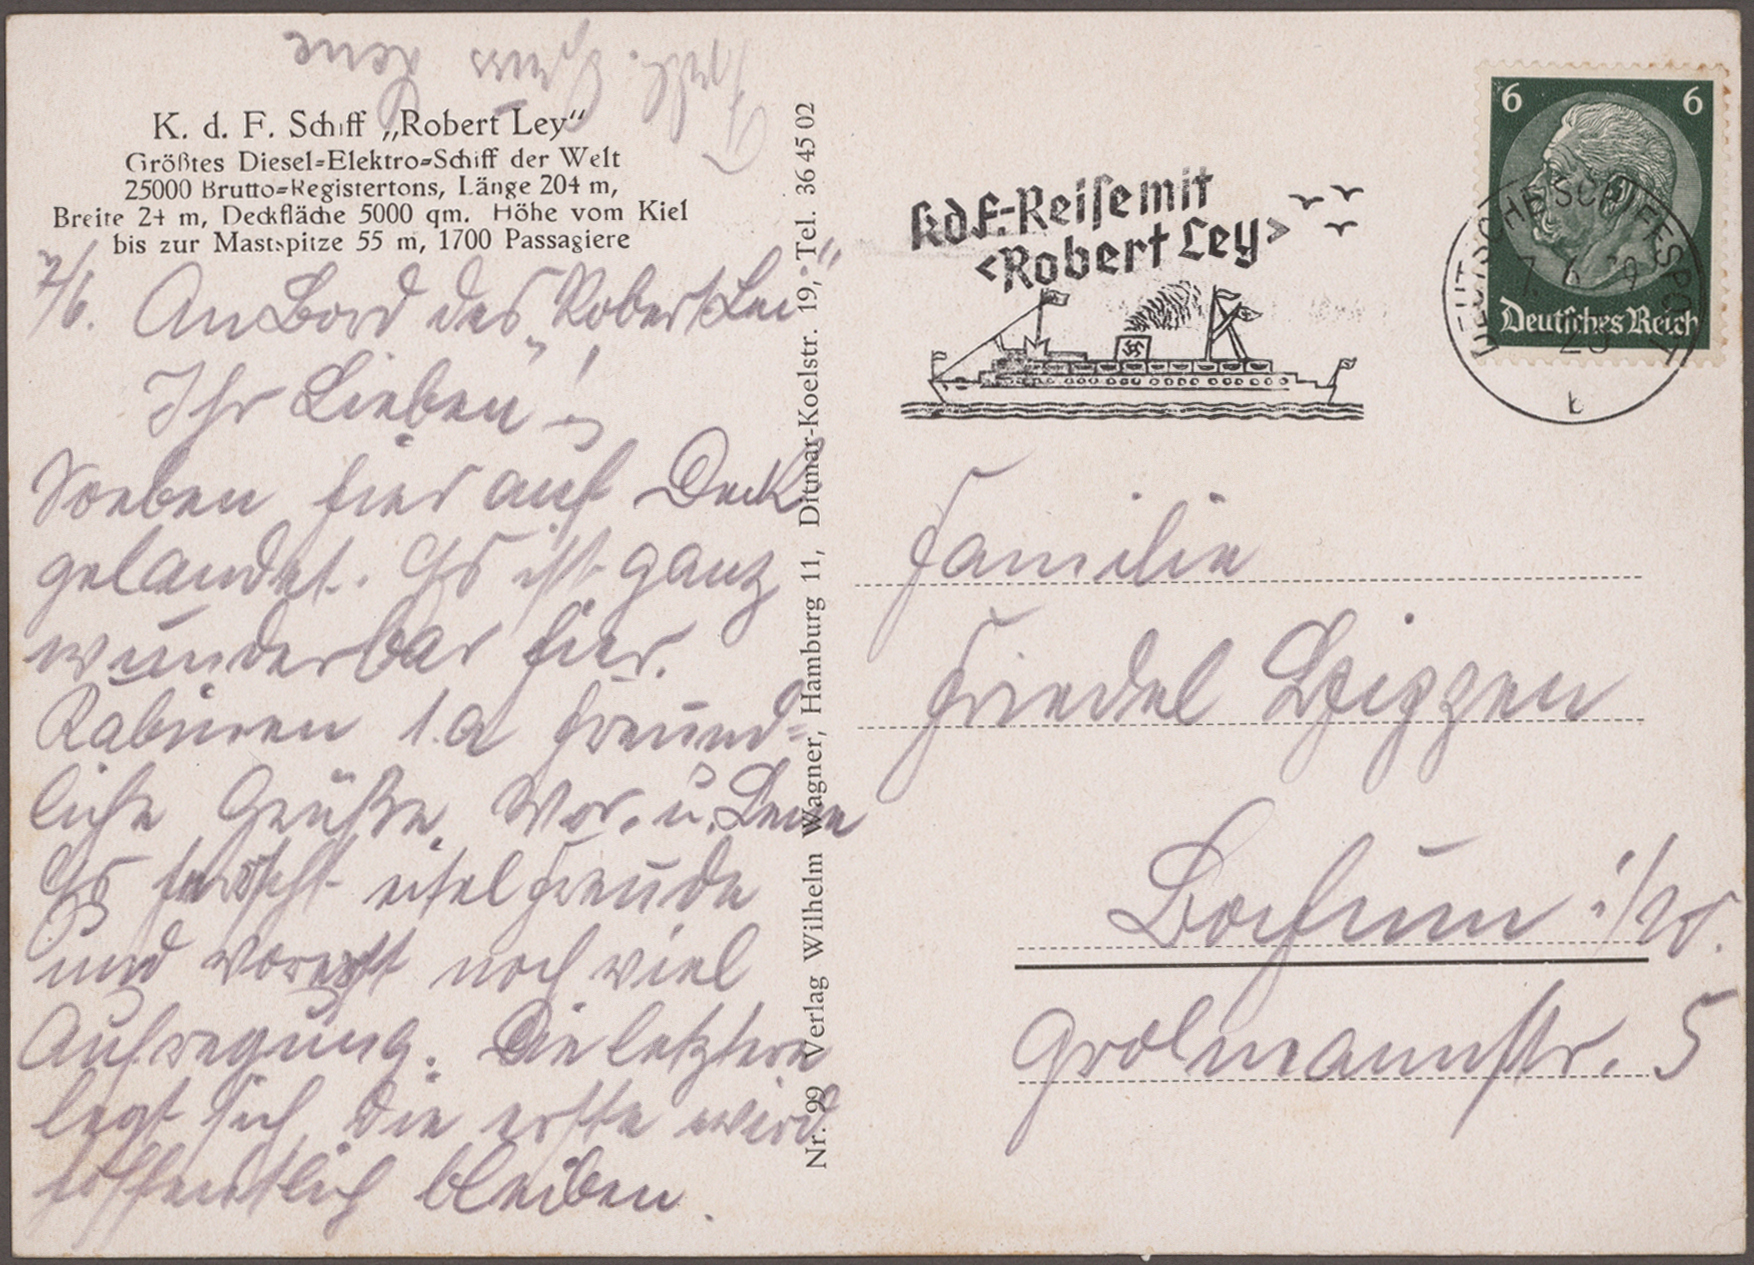 Frdl. Gruss Lene
K. d. F. Schiff „Robert Ley“
Größtes Diesel=Elektro=Schiff der Welt
25000 Brutto=Registertons, Länge 204 m,
Breite 24 m, Deckfläche 5000 qm. Höhe vom Kiel
bis zur Mastspitze 55 m, 1700 Passagiere
7/6. An Bord des „Robert Lei“
Ihr Lieben!
Soeben hier auf Deck
gelandet. Es ist ganz
wunderbar hier.
Kabinen 1.a Freund=
liche Grüße, u. Lene
Es herrscht eitel Freude
und vorerst noch viel
Aufregung. Die letztere
legt sich, die erste wird
hoffentlich bleiben.
Nr. 99 Verlag Wilhelm Wagner, Hamburg 11, Ditmar-Koelstr. 19, Tel. 36 45 02
KdF.-Reise mit
<Robert Ley>
6 6
Deutsches Reich
DEUTSCHE SCHIFFSPOST
7. 6. 39
20
b
Familie
Friedel
Bochum i/W.
Grolmannstr. 5